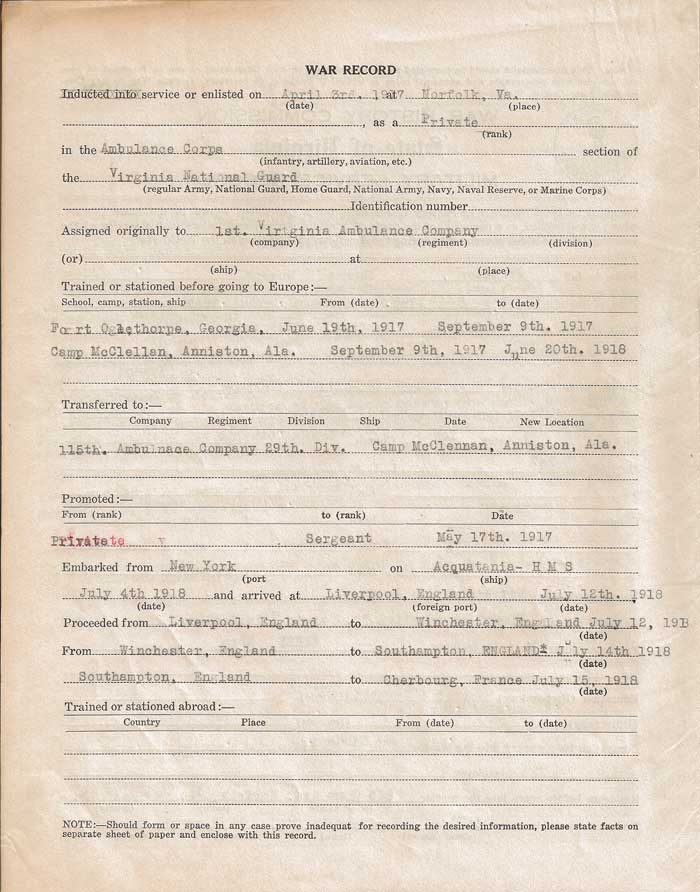 WAR RECORD
Inducted into service or enlisted on April 3rd. 1917 at Norfolk, Va.
(date) (place)
, as a Private
(rank)
in the Ambulance Corps section of
(infantry, artillery, aviation, etc.)
the Virginia National Guard
(regular Army, National Guard, Home Guard, National Army, Navy, Naval Reserve, or Marine Corps)
Identification number
Assigned originally to 1st. Virginia Ambulance Company
(company) (regiment) (division)
(or) at
(ship) (place)
Trained or stationed before going to Europe:—
School, camp, station, ship From (date) to (date)
Fort Oglethorpe, Georgia, June 19th, 1917 September 9th. 1917
Camp McClellan, Anniston, Ala. September 9th, 1917 June 20th. 1918
Transferred to:—
Company Regiment Division Ship Date New Location
115th. Ambulnace Company 29th. Div. Camp McClennan, Anniston, Ala.
Promoted:—
From (rank) to (rank) Date
Sergeant May 17th. 1917
Embarked from New York on Acquatania- H M S
(port (ship)
July 4th 1918 and arrived at Liverpool, England July 12th. 1918
(date) (foreign port) (date)
Proceeded from Liverpool, England to Winchester, England July 12, 191
(date)
From Winchester, England to Southampton, ENGLAND July 14th 1918
(date)
Southampton, England to Cherbourg, France July 15, 1918
(date)
Trained or stationed abroad:—
Country Place From (date) to (date)
NOTE:—Should form or space in any case prove inadequat for recording the desired information, please state facts on
separate sheet of paper and enclose with this record.